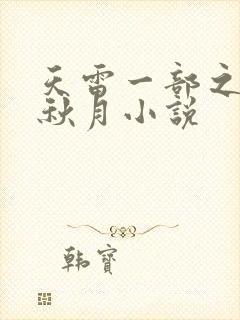 天雷一部之
秋月小說
韩寶